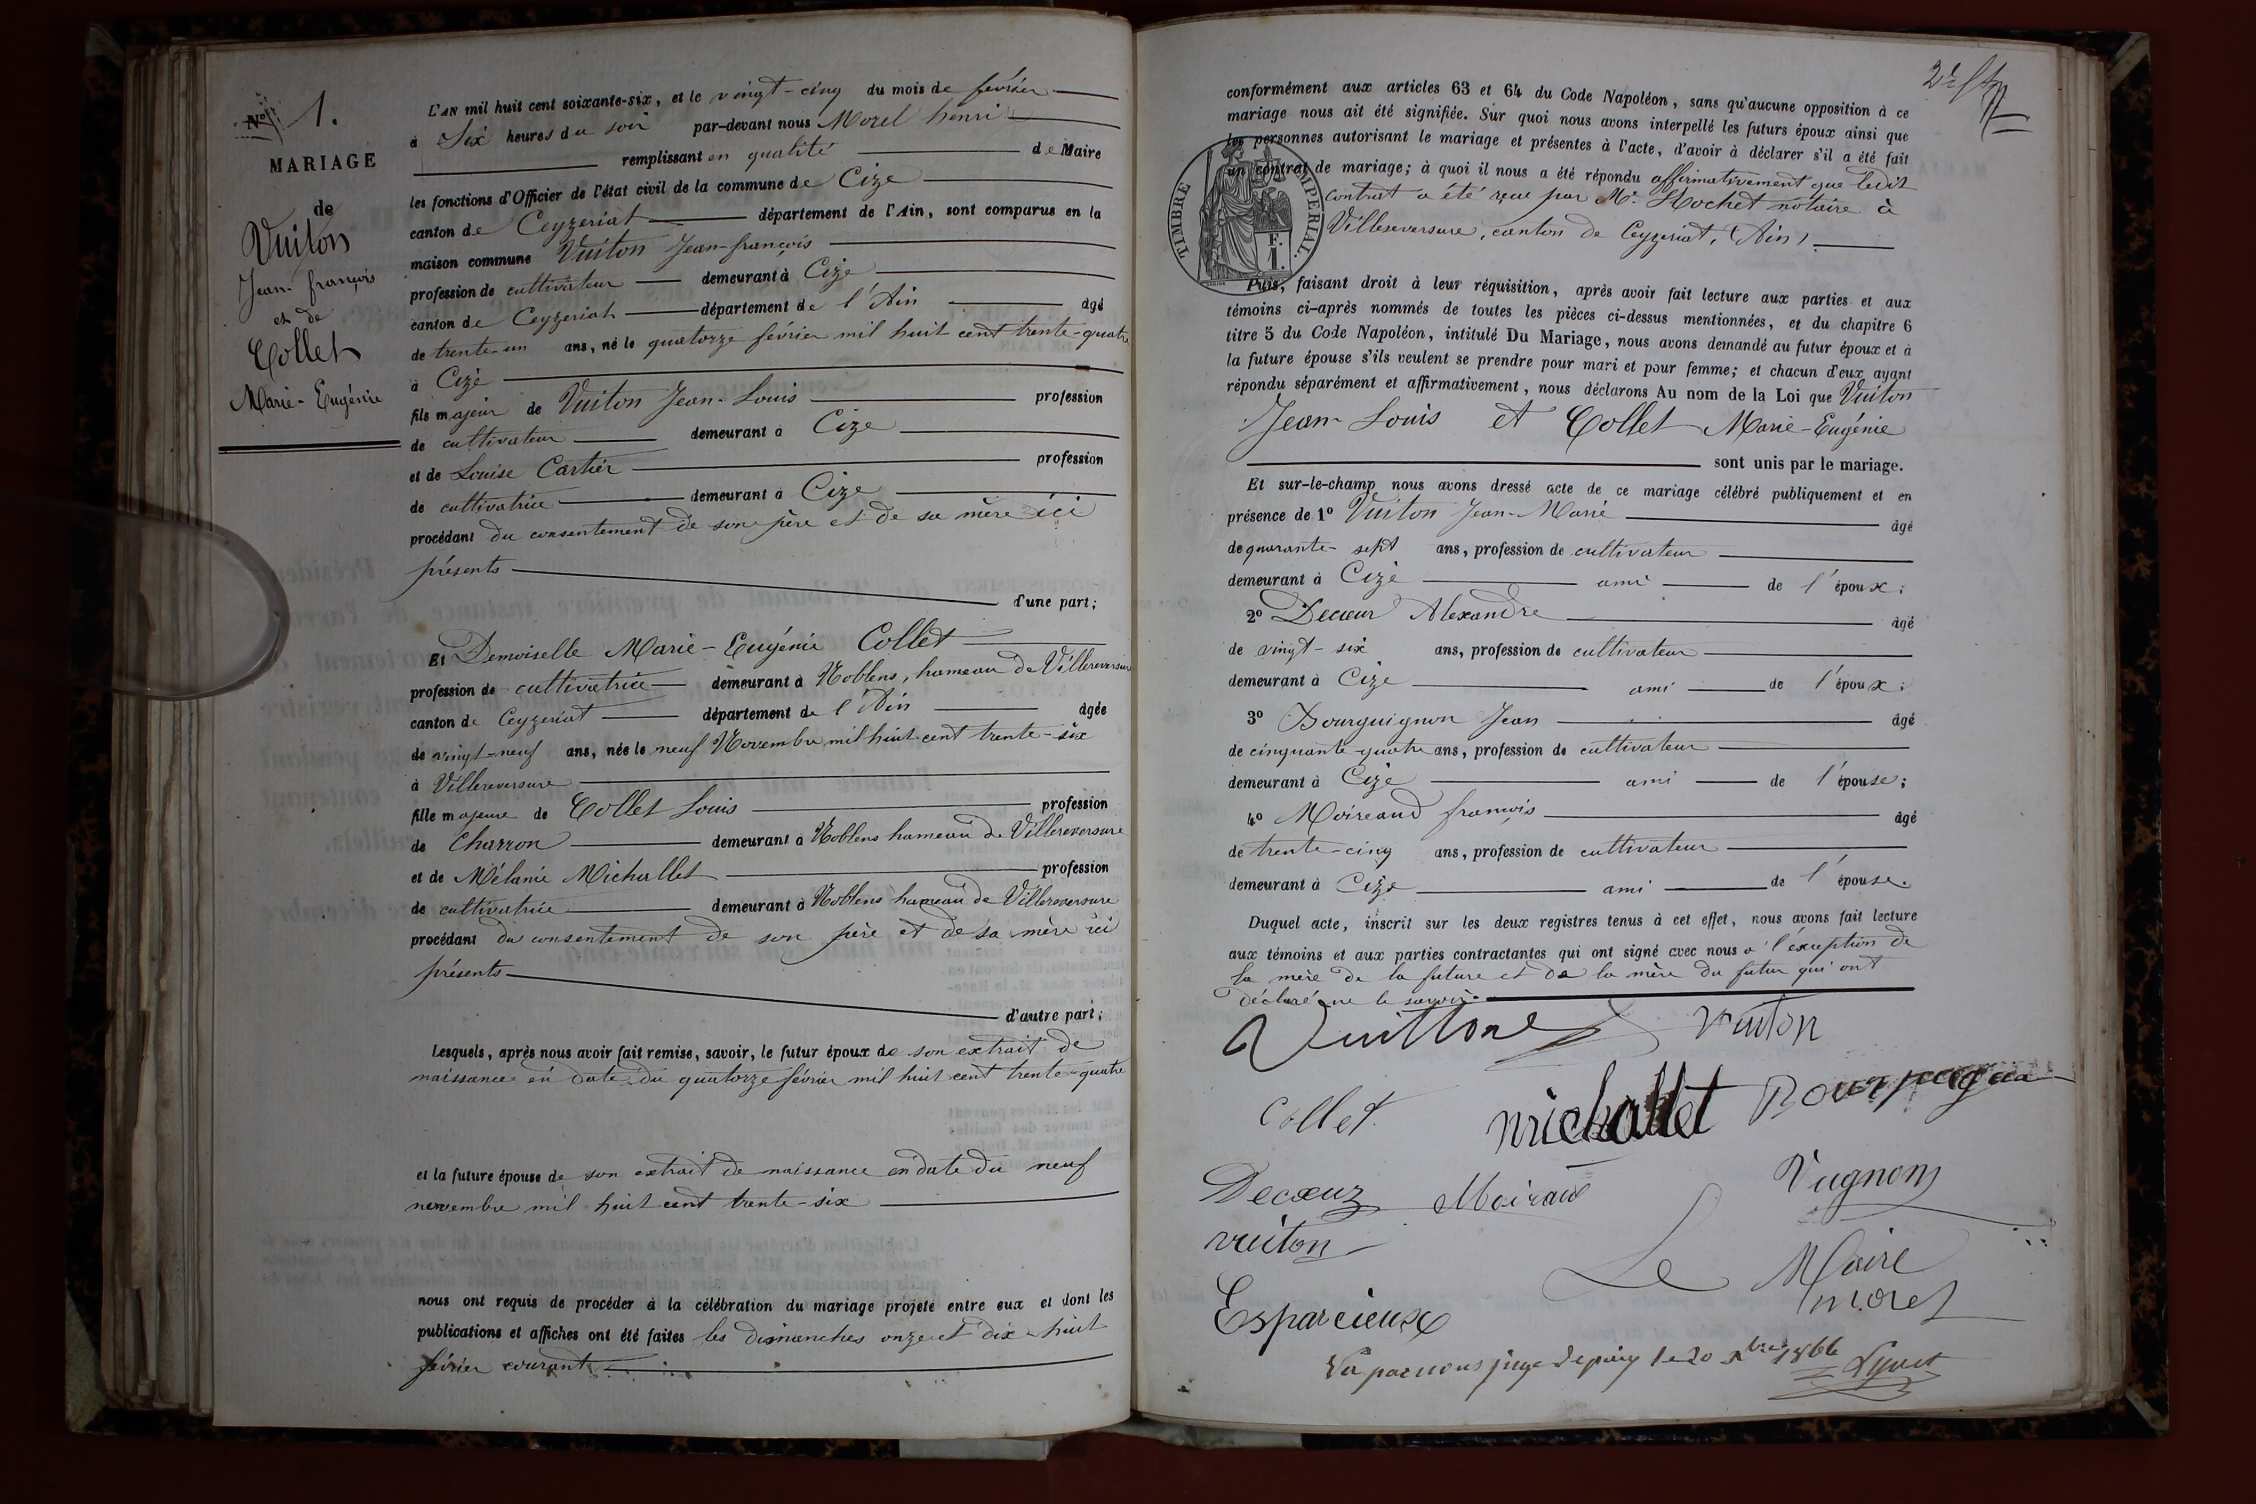 No 1.
MARIAGE
de
Vuiton
Jean-françois
et de
Collet
Marie-Eugénie
L'AN mil huit cent soixante-six, et le vingt-cinq du mois de février
à Six heures du soir par-devant nous Morel henri
remplissant en qualité de Maire
les fonctions d'Officier de l'état civil de la commune de Cize
canton de Ceyzeriat département de l'Ain, sont comparus en la
maison commune Vuiton Jean-françois
profession de cultivateur demeurant à Cize
canton de Ceyzeriat département de l'Ain âgé
de trente-un ans, né le quatorze février mil huit cent trente-quatre
à Cize
fils majeur de Vuiton Jean-Louis profession
de cultivateur demeurant à Cize
et de Louise Cartier profession
de cultivatrice demeurant à Cize
procédant du consentement de son père et de sa mère ici
présents
d'une part;
Et Demoiselle Marie-Eugénie Collet
profession de cultivatrice demeurant à Noblens, hameau de Villereversure
canton de Ceyzeriat département de l'Ain âgée
de vingt-neuf ans, née le neuf Novembre mil huit cent trente-six
à Villereversure
fille majeure de Collet Louis profession
de Charron demeurant à Noblens hameau de Villereversure
et de Mélanie Michallet profession
de cultivatrice demeurant à Noblens hameau de Villereversure
procédant du consentement de son père et de sa mère ici
présents
d'autre part;
Lesquels, après nous avoir fait remise, savoir, le futur époux de son extrait de
naissance en date du quatorze février mil huit cent trente-quatre
et la future épouse de son extrait de naissance en date du neuf
novembre mil huit cent trente-six
nous ont requis de procéder à la célébration du mariage projeté entre eux et dont les
publications et affiches ont été faites les dimanches onze et dix-huit
février courant
conformément aux articles 63 et 64 du Code Napoléon, sans qu'aucune opposition à ce
mariage nous ait été signifiée. Sur quoi nous avons interpellé les futurs époux ainsi que
les personnes autorisant le mariage et présentes à l'acte, d'avoir à déclarer s'il a été fait
un contrat de mariage; à quoi il nous a été répondu affirmativement que ledit
contrat a été reçu par Me. Hochet notaire à
Villereversure, canton de Ceyzeriat, (Ain).
TIMBRE IMPERIAL.
F.
1.
Puis, faisant droit à leur réquisition, après avoir fait lecture aux parties et aux
témoins ci-après nommés de toutes les pièces ci-dessus mentionnées, et du chapitre 6
titre 5 du Code Napoléon, intitulé Du Mariage, nous avons demandé au futur époux et à
la future épouse s'ils veulent se prendre pour mari et pour femme; et chacun d'eux ayant
répondu séparément et affirmativement, nous déclarons Au nom de la Loi que Vuiton
Jean-Louis et Collet Marie-Eugénie
sont unis par le mariage.
Et sur-le-champ nous avons dressé acte de ce mariage célébré publiquement et en
présence de 1º Vuiton Jean-Marie âgé
de quarante-sept ans, profession de cultivateur
demeurant à Cize ami de l'époux;
2º Decœur Alexandre âgé
de vingt-six ans, profession de cultivateur
demeurant à Cize ami de l'époux;
3º Bourguignon Jean âgé
de cinquante-quatre ans, profession de cultivateur
demeurant à Cize ami de l'épouse;
4º Moireaud françois âgé
de trente-cinq ans, profession de cultivateur
demeurant à Cize ami de l'épouse.
Duquel acte, inscrit sur les deux registres tenus à cet effet, nous avons fait lecture
aux témoins et aux parties contractantes qui ont signé avec nous à l'exception de
la mère de la future et de la mère du futur qui ont
déclaré ne le savoir.
Vuittone Vuiton
Collet michallet
Decœur Moiraud Vugnon
vuiton
Le Maire
Esparcieux morel
Vu par nous juge de paix le 20 Xbre 1866